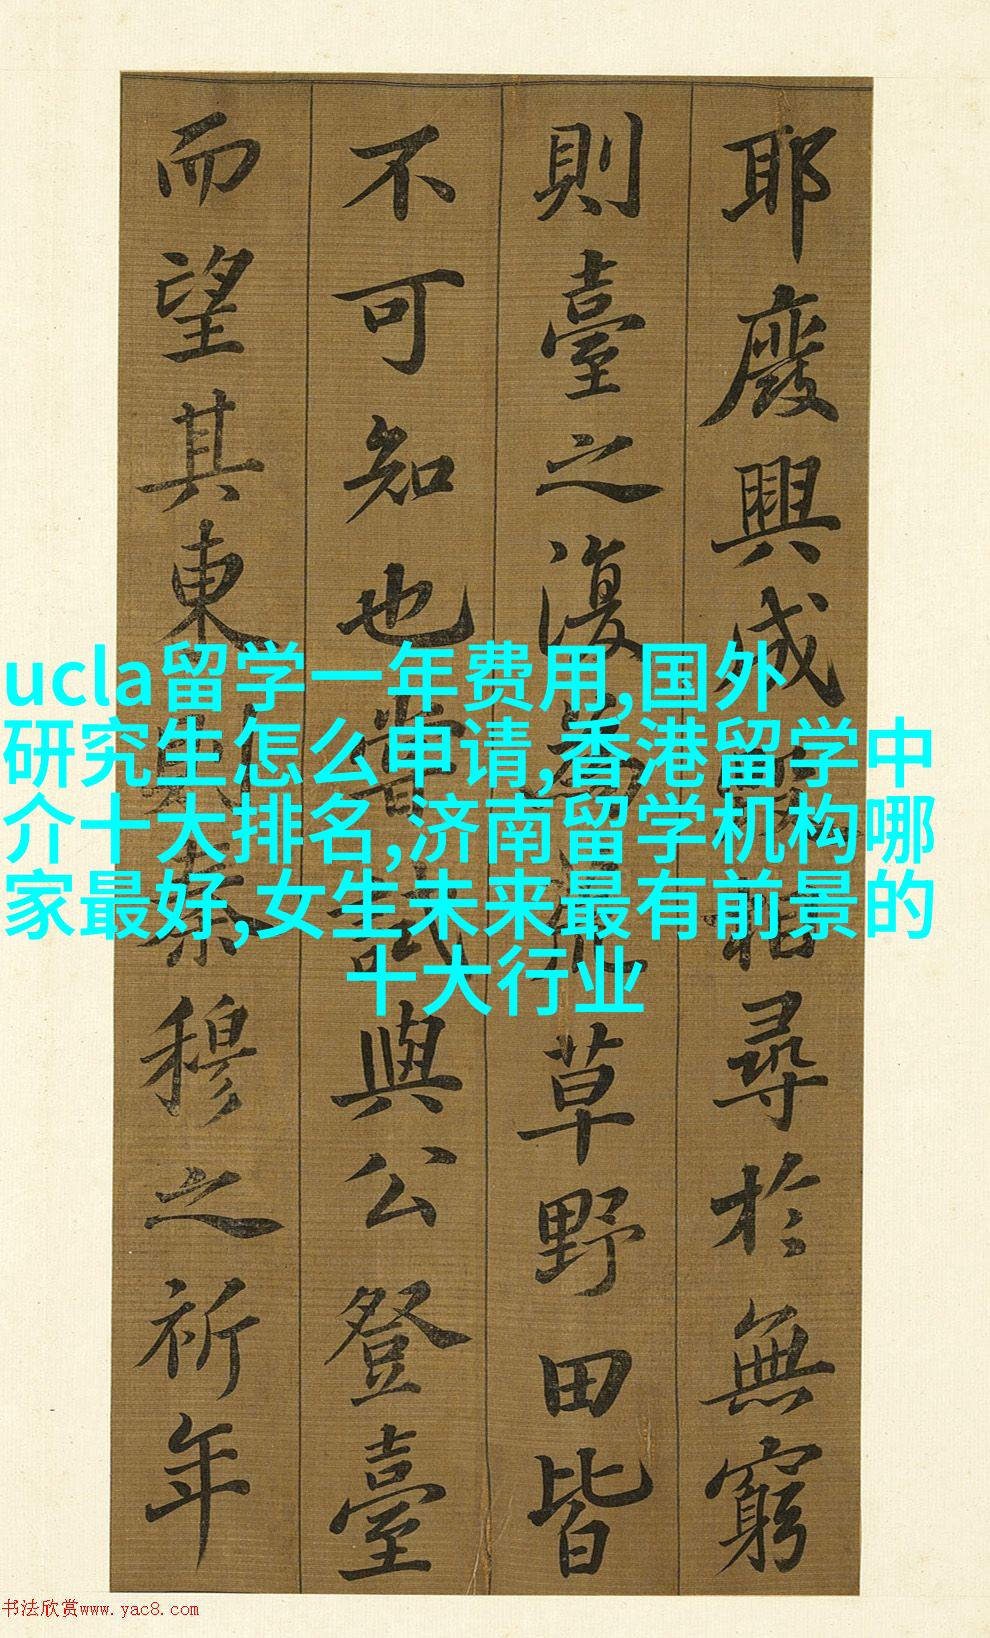 耶廢興成毀相尋於無窮
則臺之復為荒草野田皆
不可知也嘗試與公登臺
而望其東則秦穆之祈年
ucla留学一年费用,国外
研究生怎么申请,香港留学中
介十大排名,济南留学机构哪
家最好,女生未来最有前景的
十大行业
书法欣赏www.yac8.com